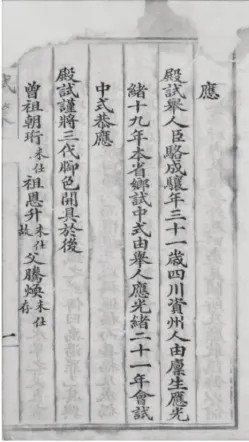 應
殿試舉人臣駱成驤年三十一歲四川資州人由廩生應光
緒十九年本省鄉試中式由舉人應光緒二十一年會試
中式恭應
殿試謹將三代腳色開具於後
曾祖朝珩未仕祖恩升未仕故父騰煥未仕存
一